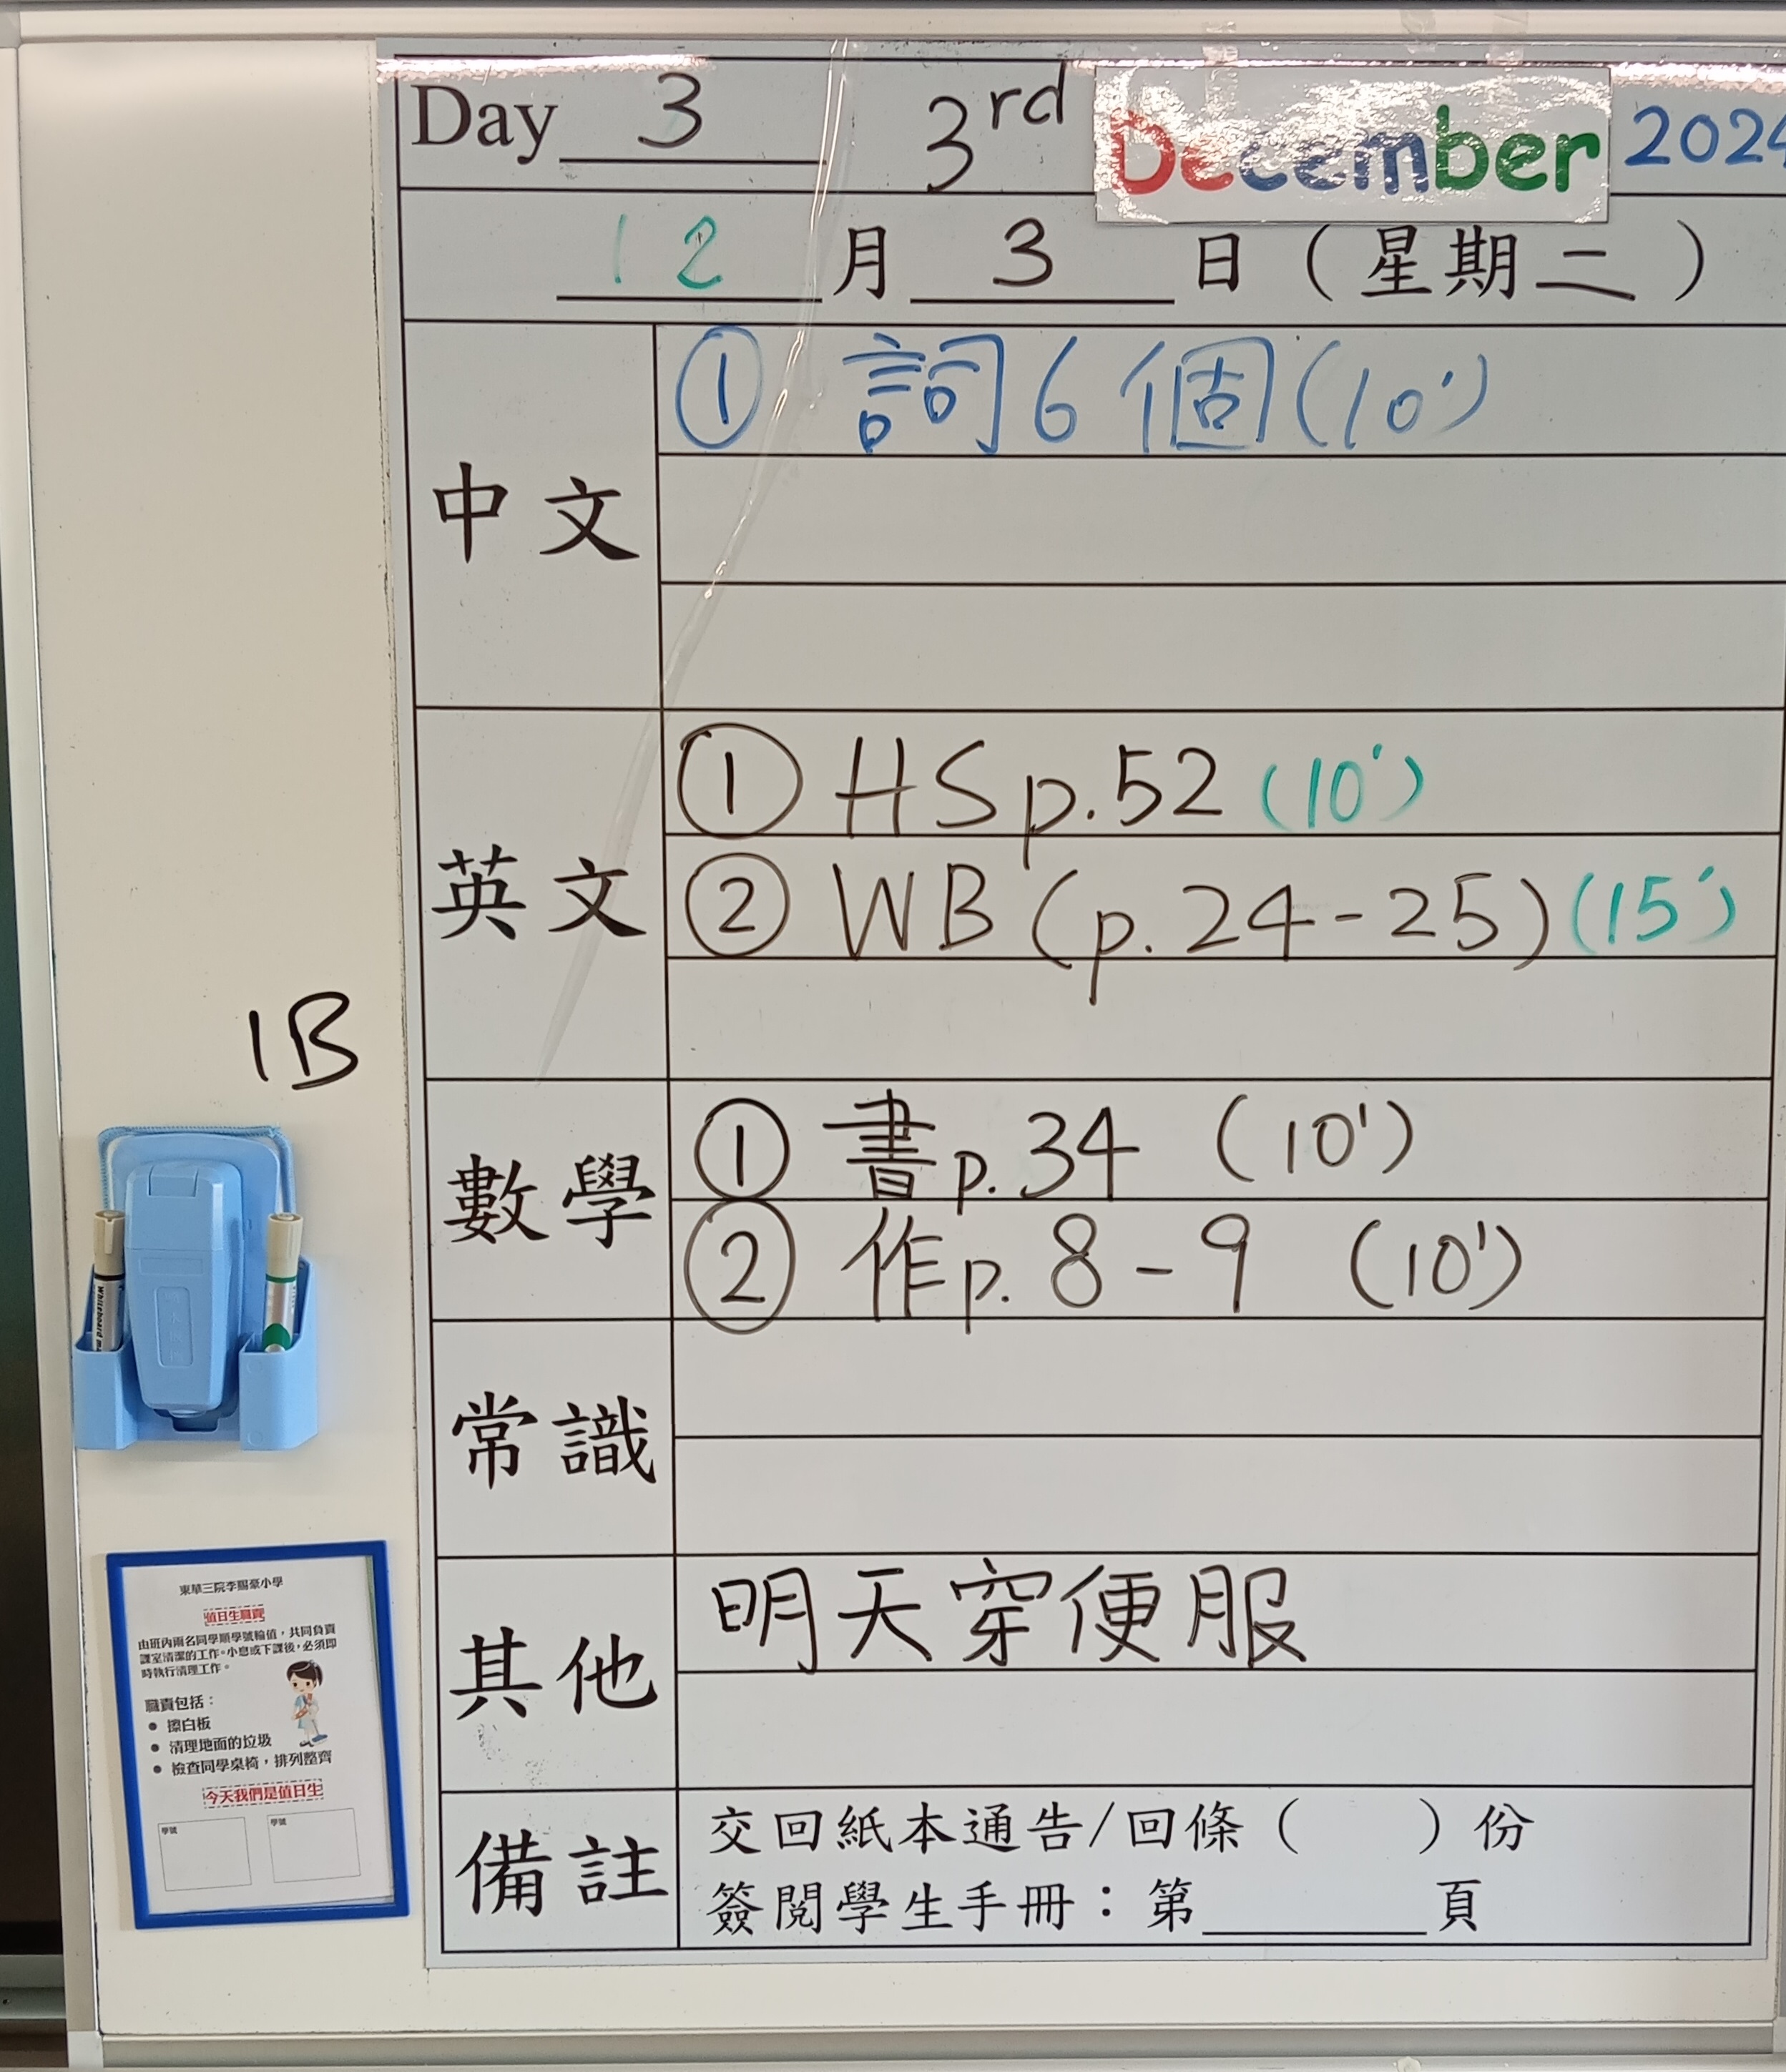 Day 3 3rd December 2024
12 月 3 日 ( 星期二 )
中文
① 詞6個(10')
英文
① HS p.52 (10')
② WB (p.24-25) (15')
數學
① 書p.34 (10')
② 作p.8-9 (10')
常識
其他
明天穿便服
備註
交回紙本通告/回條 ( ) 份
簽閱學生手冊：第______頁
1B
Whiteboard
東華三院李賜豪小學
值日生職責
由班內兩名同學順學號輪值，共同負責
課室清潔的工作。小息或下課後，必須即
時執行清理工作。
職責包括：
• 擦白板
• 清理地面的垃圾
• 檢查同學桌椅，排列整齊
今天我們是值日生
學號 學號